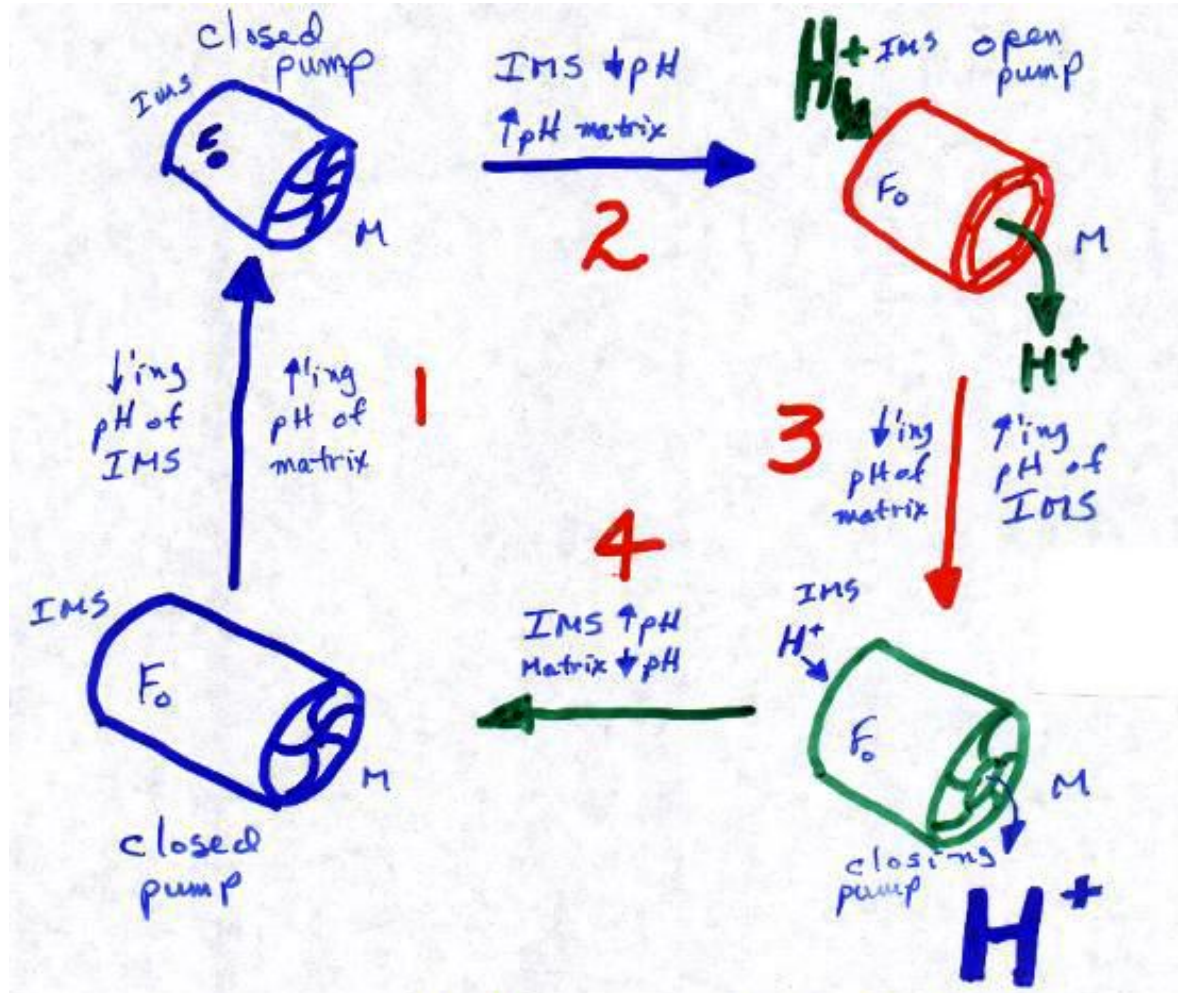 closed
pump
IMS
F₀
M
IMS ↓pH
↑pH matrix
2
H⁺
IMS open
pump
F₀
M
H⁺
↓'ing
pH of
IMS
↑'ing
pH of
matrix
1
3
↓'ing
pH of
matrix
↑'ing
pH of
IMS
4
IMS ↑pH
Matrix ↓pH
IMS
F₀
M
closed
pump
IMS
H⁺
F₀
M
closing
pump
H⁺